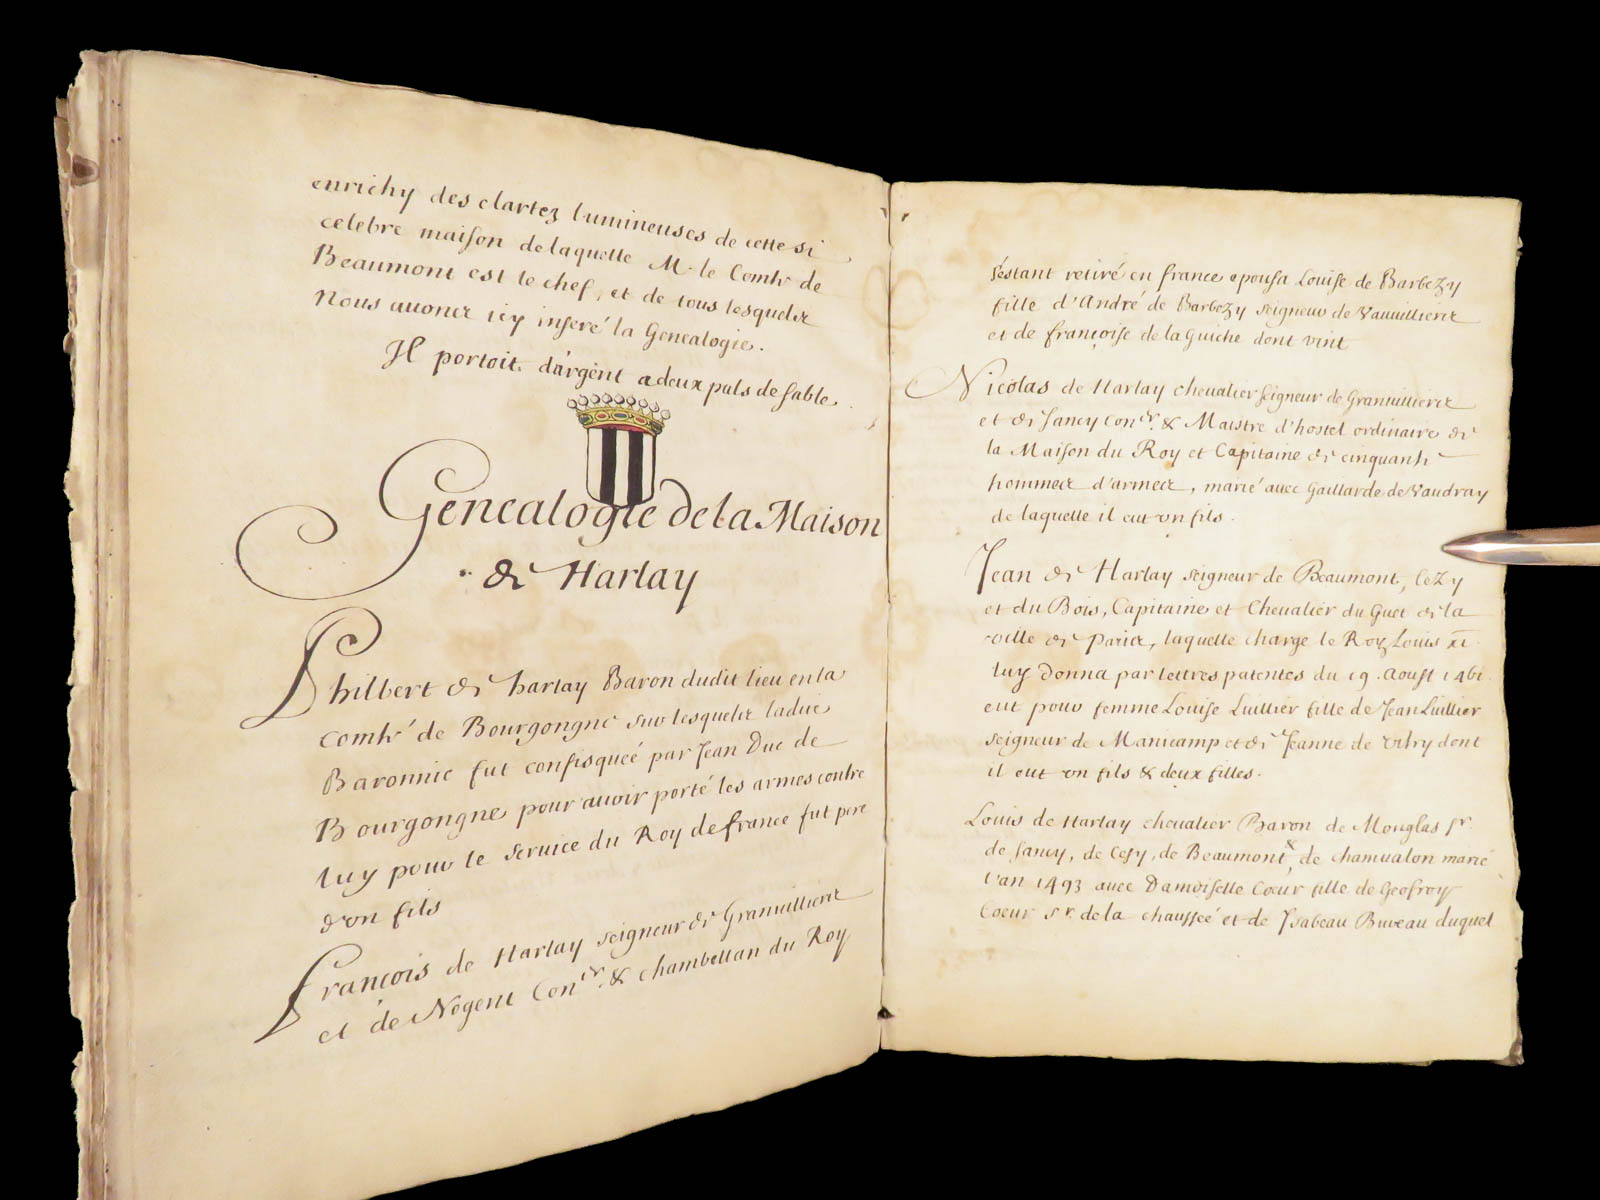 enrichy des clartez lumineuses de cette si
celebre maison de laquelle M. le Comte de
Beaumont est le chef, et de tous lesquels
nous avons icy inseré la Genealogie.
Il portoit d'argent a deux pals de sable.
Genealogie de la Maison
de Harlay
Philbert de harlay Baron dudit lieu en la
comté de Bourgongne sur lesquels ladite
Baronnie fut confisqueé par Jean Duc de
Bourgongne pour avoir porté les armes contre
luy pour le service du Roy de france fut pere
d'un fils
François de Harlay seigneur de Granvilliers
et de Nogent Con.er & chambellan du Roy
s'estant retiré en france epousa Louise de Barbezy
fille d'André de Barbezy seigneur de Vauvilliers
et de françoise de la Guiche dont vint
Nicolas de Harlay chevalier seigneur de Granvilliers
et de Sancy Con.er & Maistre d'hostel ordinaire de
la Maison du Roy et Capitaine de cinquante
hommes d'armes, marié avec Gaillarde de Vaudray
de laquelle il eut un fils.
Jean de Harlay seigneur de Beaumont, Cezy
et du Bois, Capitaine et Chevalier du Guet de la
ville de Paris, laquelle charge le Roy Louis XI.
luy donna par lettres patentes du 19. Aoust 1461.
eut pour femme Louise Luillier fille de Jean Luillier
seigneur de Manicamp et de Jeanne de vitry dont
il eut un fils & deux filles.
Louis de Harlay chevalier Baron de Monglas sr.
de Sancy, de Cesy, de Beaumont & de chamvalon marié
l'an 1493 avec Damoiselle Cœur fille de Geofroy
Coeur sr. de la chausseé et de Isabeau Bureau duquel